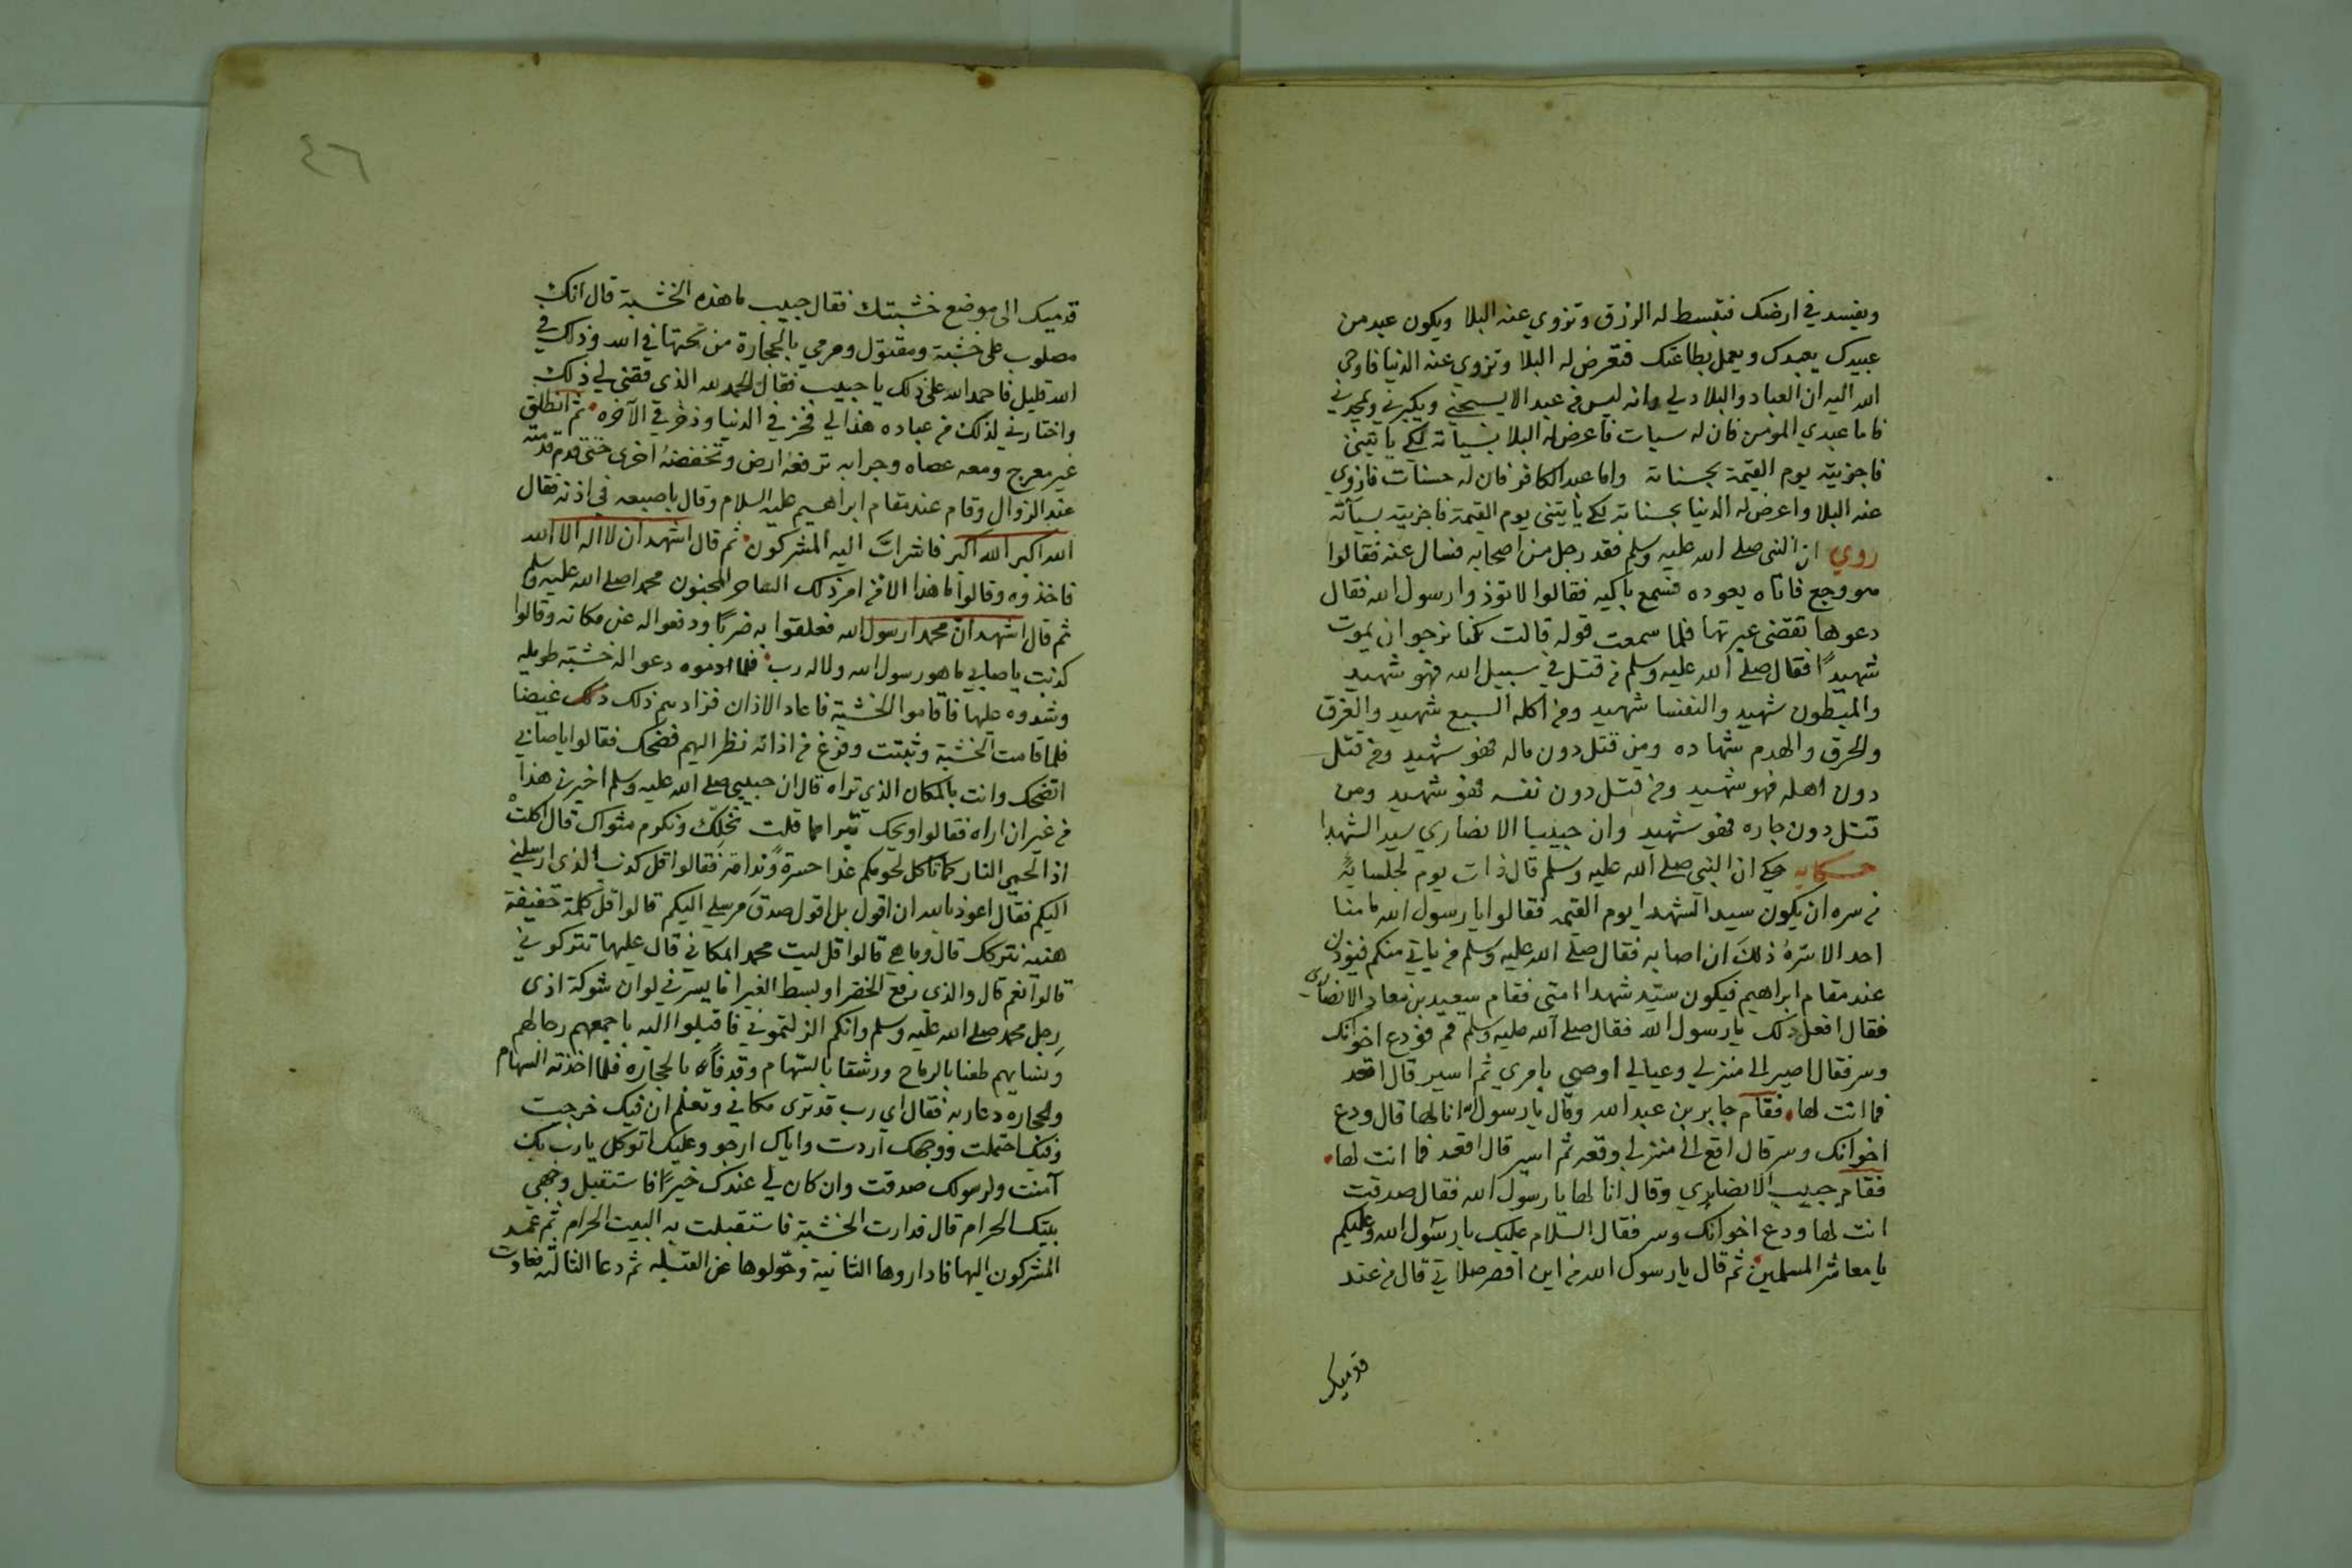 ويفسد في ارضك فتبسط له الرزق وتزوي عنه البلا ويكون عبد من
عبيدك يعبدك ويعمل بطاعتك فتعرض له البلا وتزوي عنه الدنيا فاوحى
الله اليه ان العباد والبلاد لي وانه ليس من عبد الا يسبحني ويكبرني ويمجدني
فاما عبدي المومن فان له سيات فاعرض له البلا بسياته لكي ياتيني
فاجزيته يوم القيمة بحسناته واما عبد الكافر فان له حسنات فازوي
عنه البلا واعرض له الدنيا بحسناته لكي ياتيني يوم القيمة فاجزيته بسياته
روي ان النبي صلى الله عليه وسلم فقد رجل من اصحابه فسال عنه فقالوا
هو وجع فاتاه يعوده فسمع باكيه فقالوا لا توذوا رسول الله فقال
دعوها تقضي عبرتها فلما سمعت قوله قالت كنا نرجوا ان يموت
شهيدًا فقال صلى الله عليه وسلم من قتل في سبيل الله فهو شهيد
والمبطون شهيد والنفسا شهيد ومن اكله السبع شهيد والغرق
والحرق والهدم شهاده ومن قتل دون ماله فهو شهيد ومن قتل
دون اهله فهو شهيد ومن قتل دون نفسه فهو شهيد ومن
قتل دون جاره فهو شهيد وان حبيبا الانصاري سيد الشهدا
حكايه حكي ان النبي صلى الله عليه وسلم قال ذات يوم لجلسايه
من سره ان يكون سيد الشهدا يوم القيمه فقالوا يا رسول الله ما منا
احد الا سرهُ ذلك ان اصابه فقال صلى الله عليه وسلم من ياتي منكم فيوذن
عند مقام ابراهيم فيكون سيّد شهدا امتي فقام سعيد بن معاد الانصاري
فقال افعل ذلك يا رسول الله فقال صلى الله عليه وسلم قم فودع اخوانك
وسر فقال اصير الى منزلي وعيالي اوصي بامري ثم اسير قال اقعد
فما انت لها فقام جابر بن عبد الله وقال يا رسول الله انا لها قال ودع
اخوانك وسر قال اقع الى منزلي وقعه ثم اسير قال اقعد فما انت لها
فقام حبيب الانصاري وقال انا لها يا رسول الله فقال صدقت
انت لها ودع اخوانك وسر فقال السلام عليك يا رسول الله وعليكم
يا معاشر المسلمين ثم قال يا رسول الله من اين اقصر صلاتي قال من عند
قدميك
٤٦
قدميك الى موضع خشبتك فقال حبيب ما هذه الخشبة قال انك
مصلوب على خشبة ومقتول ومرمي بالحجارة من تحتها في الله وذلك في
الله قليل فاحمد الله على ذلك يا حبيب فقال الحمد لله الذي قضى لي ذلك
واختارني لذلك من عباده هذا لي فخر في الدنيا وذخر في الآخره ثم انطلق
غير معرج ومعه عصاه وجرابه ترفعهُ ارض وتخفضهُ اخرى حتى قدم مكه
عند الزوال وقام عند مقام ابراهيم عليه السلام وقال باصبعه في اذنه فقال
الله اكبر الله اكبر فاشرابّ اليه المشركون ثم قال اشهد ان لا اله الا الله
فاخذوه وقالوا ما هذا الا من امر ذلك الساحر المجنون محمد صلى الله عليه وسلم
ثم قال اشهد ان محمدا رسول الله فعلقوا به ضربًا ودفعوا له عن مكانه وقالوا
كذبت يا صابي ما هو رسول الله ولا له رب فلما ادموه دعوا له خشبة طويله
وشدوه عليها فاقاموا الخشبة فاعاد الاذان فزادهم ذلك غيضا
فلما قامت الخشبة وثبتت وفرغ من اذانه نظر اليهم فضحك فقالوا يا صابي
اتضحك وانت بالمكان الذي تراه قال ان حبيبي صلى الله عليه وسلم اخبرني هذا
من غير ان اراه فقالوا ويحك تبرا مما قلت نخلك ونكرم مثواك قال اكلت
اذا لحمي النار كما تاكل لحومكم غدا حسرة وندامة فقالوا قل كذب الذي ارسلني
اليكم فقال اعوذ بالله ان اقول بل اقول صدق مرسلي اليكم قالوا قل كلمة خفيفة
هنيه نتركك قال وما هي قالوا قل ليت محمد امكاني قال عليها تتركوني
قالوا نعم قال والذي رفع الخضرا وبسط الغبرا ما يسرني لو ان شوكة اذى
رجل محمد صلى الله عليه وسلم وانكم انزلتموني فاقبلوا اليه باجمعهم رجالهم
ونسايهم طعنا بالرماح ورشقا بالسهام وقدفًا بالحجاره فلما اخذته السهام
والحجاره دعا ربه فقال اي رب قد ترى مكاني وتعلم ان فيك خرجت
وفيك احتملت ووجهك اردت واياك ارجو وعليك اتوكل يا رب بك
آمنت ولرسولك صدقت وان كان لي عندك خيرًا فاستقبل وجهي
بيتك الحرام قال فدارت الخشبة فاستقبلت به البيت الحرام ثم عمد
المشركون اليها فاداروها الثانية وحولوها عن القبله ثم دعا الثالثه فعادت